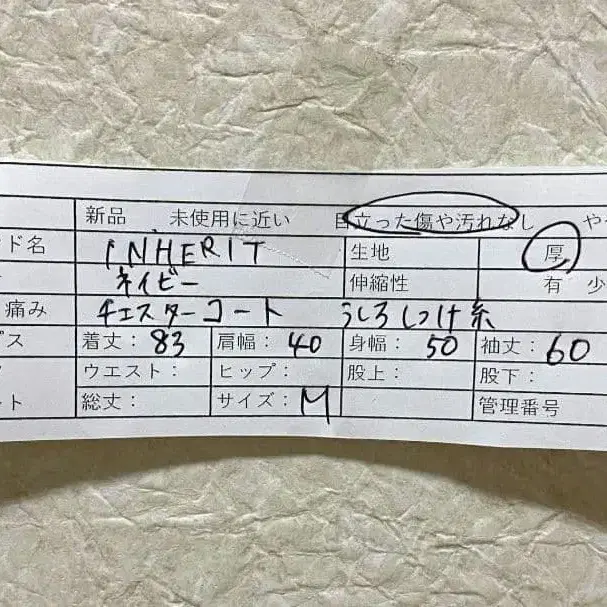 新品 未使用に近い 目立った傷や汚れなし や
ド名 INHERIT 生地 厚
ネイビー 伸縮性 有 少
痛み チェスターコート うしろしつけ糸
プス 着丈：83 肩幅：40 身幅：50 袖丈：60
ウエスト： ヒップ： 股上： 股下：
ト 総丈： サイズ：M 管理番号